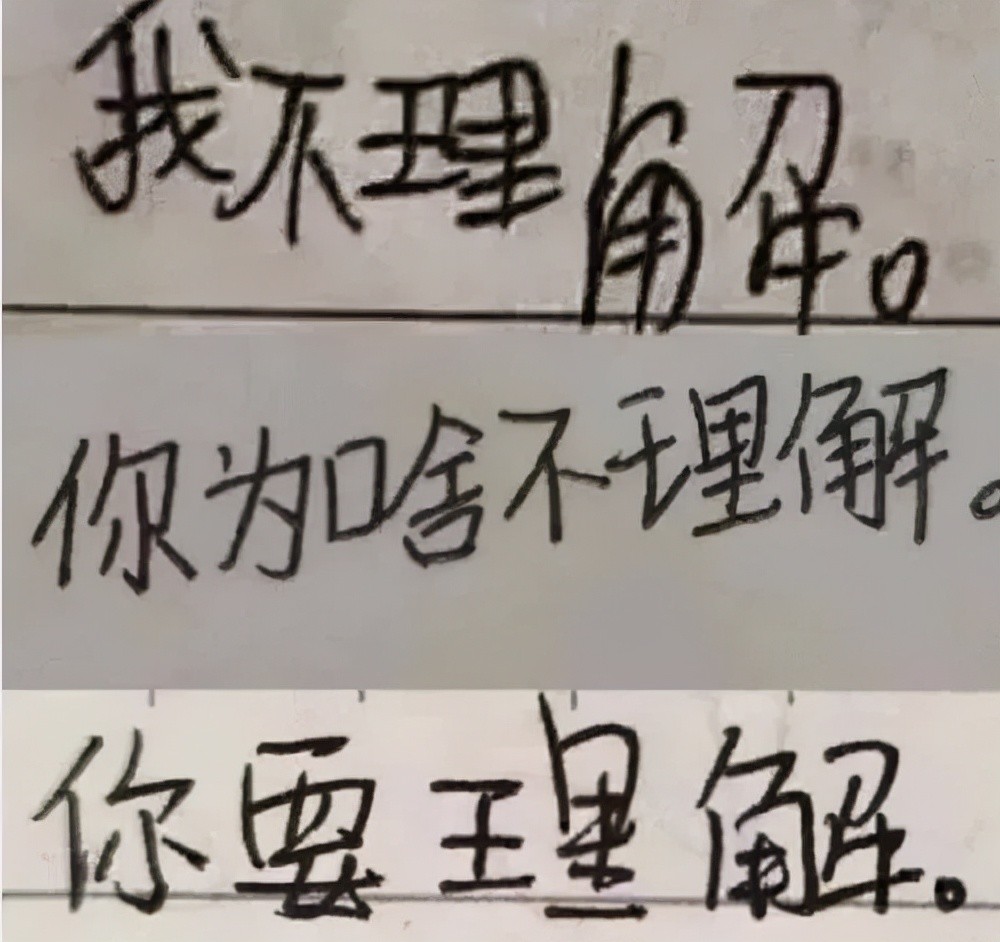 我不理解。
你为啥不理解。
你要理解。